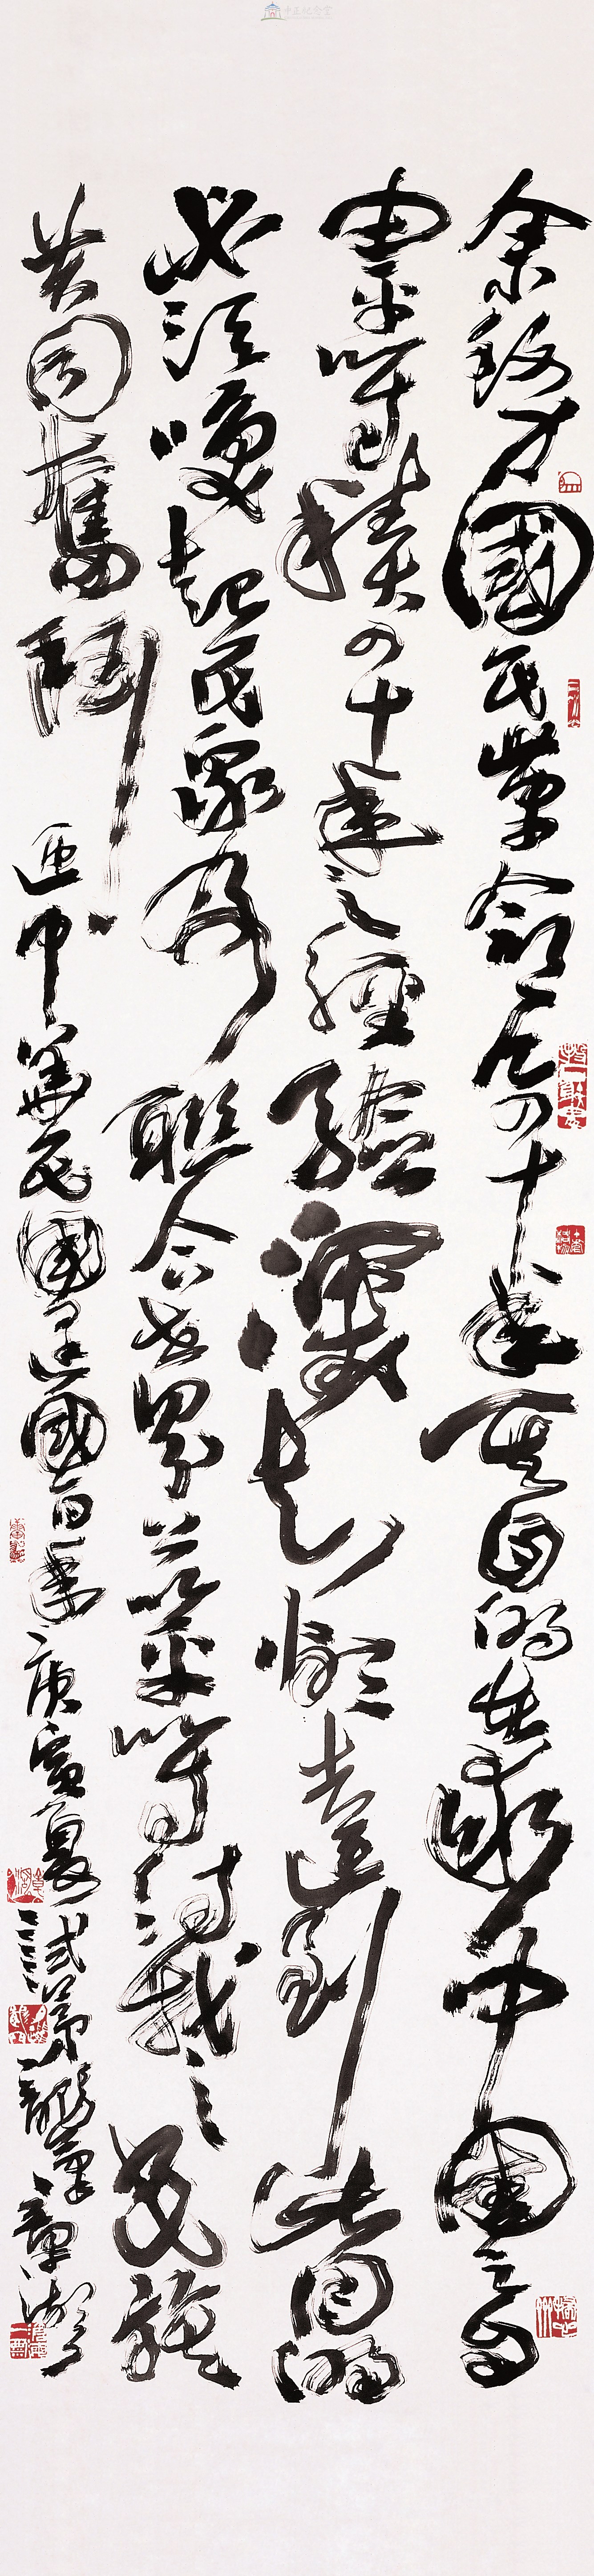 中正紀念堂
余致力國民革命凡四十年其目的在求中國之自
由平等積四十年之經驗深知欲達到此目的
必須喚起民眾及聯合世界上以平等待我之民族
共同奮鬥 迎中華民國建國百年庚寅夏試筆